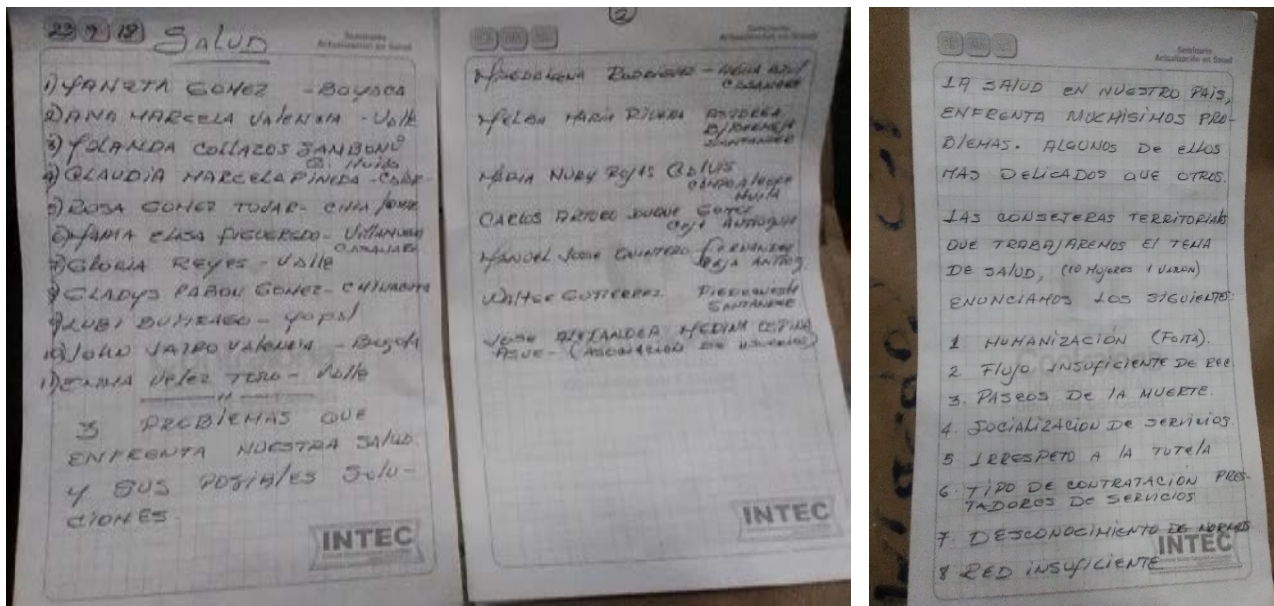 23 9 18 SALUD
Seminario
Actualización en Salud
1) YANETH GOMEZ - BOYACA
2) ANA MARCELA VALENCIA - Valle
3) YOLANDA COLLAZOS SAMBONI
Huila
4) CLAUDIA MARCELA PINEDA
5) ROSA GOMEZ TOVAR - CHIA
6) MARIA ELISA FIGUEREDO - Villanueva
CASANARE
7) GLORIA REYES - Valle
8) GLADYS PABON GOMEZ - CHINACOTA
9) LUBI BUITRAGO - Yopal
10) JOHN JAIRO VALENCIA - Bogotá
11) EMMA VELEZ TORO - Valle
3 PROBLEMAS QUE
ENFRENTA NUESTRA SALUD.
Y SUS POSIBLES SOLU-
CIONES.
INTEC
2
Seminario
Actualización en Salud
MAGDALENA RODRIGUEZ - AGUA AZUL
CASANARE
MELBA MARIA RIVERA
B/BERMEJA
SANTANDER
MARIA NURY ROJAS
CAMPOALEGRE
HUILA
CARLOS ARTURO DUQUE GOMEZ
ANTIOQUIA
MANUEL JOSE QUINTERO FERNANDEZ
CEJA ANTIOQ.
WALTER GUTIERREZ PIEDECUESTA
SANTANDER
JOSE ALEXANDER MEDINA
ASUE - (ASOCIACION DE USUARIOS)
INTEC
Seminario
Actualización en Salud
LA SALUD EN NUESTRO PAIS,
ENFRENTA MUCHISIMOS PRO-
BLEMAS. ALGUNOS DE ELLOS
MAS DELICADOS QUE OTROS.
LAS CONSEJERAS TERRITORIALES
QUE TRABAJAREMOS EL TEMA
DE SALUD, (10 MUJERES 1 VARON)
ENUNCIAMOS LOS SIGUIENTES:
1 HUMANIZACIÓN (FALTA).
2 FLUJO INSUFICIENTE DE REC.
3. PASEOS DE LA MUERTE.
4. SOCIALIZACION DE SERVICIOS.
5 IRRESPETO A LA TUTELA
6. TIPO DE CONTRATACIÓN PRES-
TADORES DE SERVICIOS
7 DESCONOCIMIENTO DE NORMAS
8 RED INSUFICIENTE
INTEC